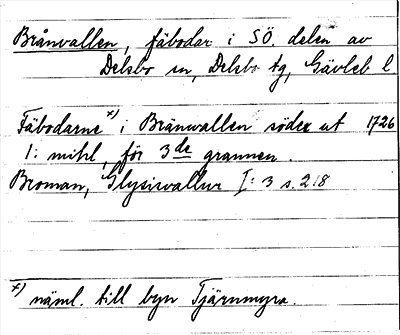 Brånvallen, fäbodar i SÖ. delen av
Delsbo sn, Delsbo tg, Gävleb l.
Fäbodarne x) i Brånwallen söder ut 1726
1: mihl, för 3 de grannen.
Broman, Glysisvallur I: 3 s. 218
x) näml. till byn Tjärnmyra.